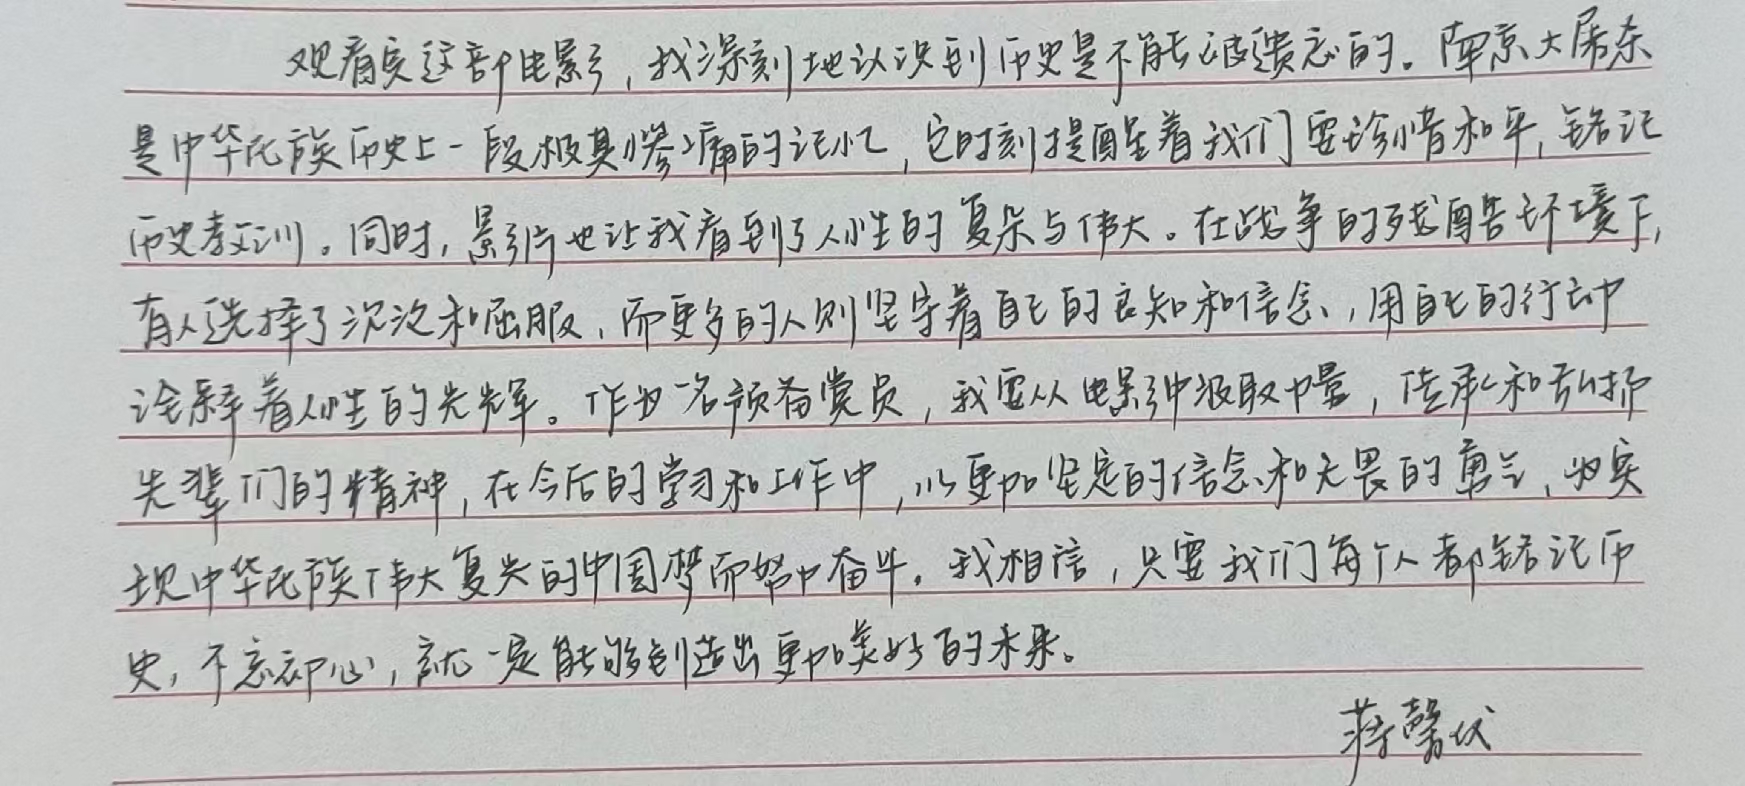 观看完这部电影，我深刻地认识到历史是不能被遗忘的。南京大屠杀
是中华民族历史上一段极其惨痛的记忆，它时刻提醒着我们要珍惜和平，铭记
历史教训。同时，影片也让我看到了人性的复杂与伟大。在战争的残酷环境下，
有人选择了沉沦和屈服，而更多的人则坚守着自己的良知和信念，用自己的行动
诠释着人性的光辉。作为一名预备党员，我要从电影中汲取力量，传承和弘扬
先辈们的精神，在今后的学习和工作中，以更加坚定的信念和无畏的勇气，为实
现中华民族伟大复兴的中国梦而努力奋斗。我相信，只要我们每个人都铭记历
史，不忘初心，就一定能够创造出更加美好的未来。
蒋馨